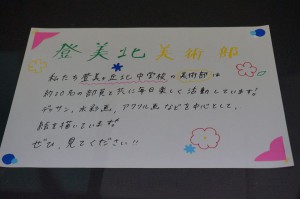 登美北美術部
私たち登美ヶ丘北中学校の美術部は
約20名の部員と共に毎日楽しく活動しています!
デッサン、水彩画、アクリル画などを中心として、
絵を描いています!
ぜひ、見てください!!